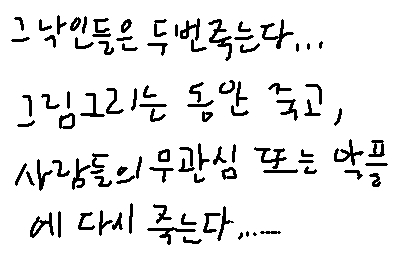 그낙인들은 두번죽는다...
그림그리는 동안 죽고,
사람들의 무관심 또는 악플
에 다시 죽는다......